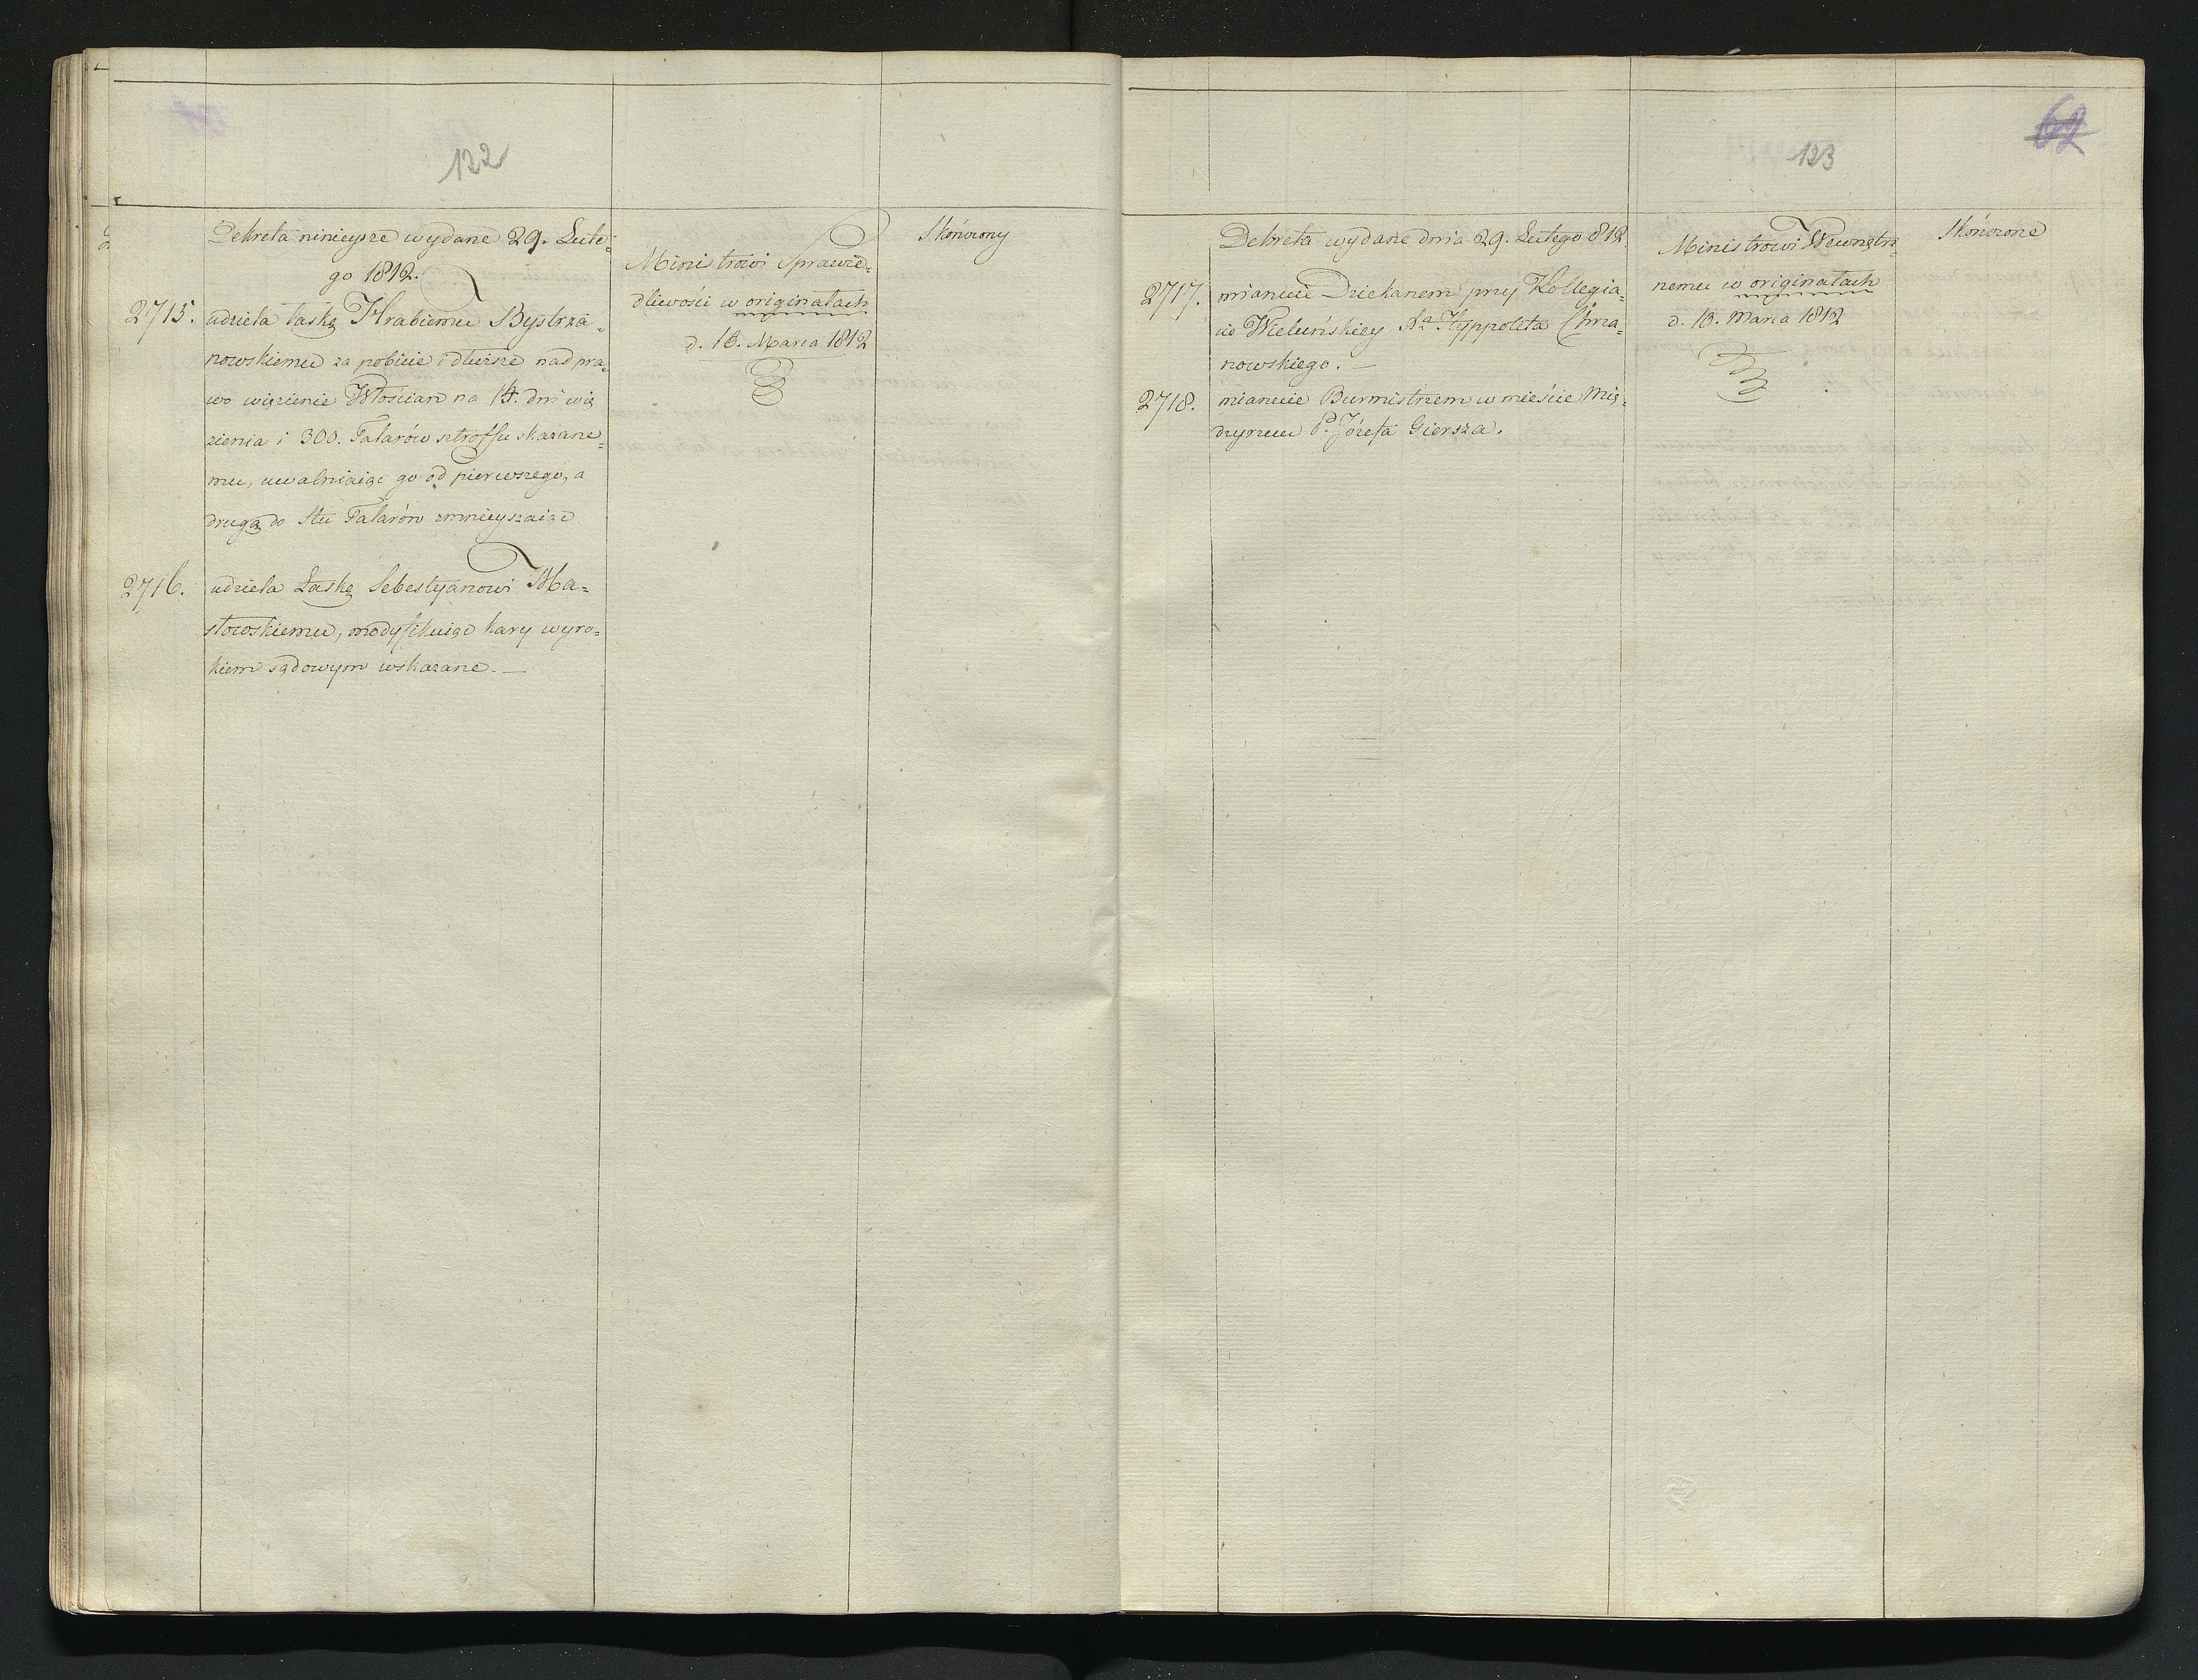 122
Dekreta ninieysze wydane 29. Lute=
go 1812.
2715. udziela łaskę Hrabiemu Bystrza=
nowskiemu za pobicie i dłuższe nad pra=
wo więzienie Włościan na 14. dni wię
zienia i 300. Talarów sztroffu skazane=
mu, uwalniaiąc go od pierwszego, a
drugą do Stu Talarów zmnieyszaiąc
2716. udziela Łaskę Sebestyanowi Ma=
słowskiemu, modyfikuiąc kary wyro=
kiem sądowym wskazane. —
Ministrowi Sprawie=
dliwości w originałach
d. 10. Marca 1812
Skończony
123
62
Dekreta wydane dnia 29. Lutego 812.
2717. mianuie Dziekanem przy Kollegia=
cie Wieluńskiey Xa Hyppolita Chrza=
nowskiego. —
2718. mianuie Burmistrzem w mieście Mię=
dzyrzecu P. Józefa Giersza.
Ministrowi Wewnętrz
nemu w originałach
d. 10. Marca 1812
Skończone